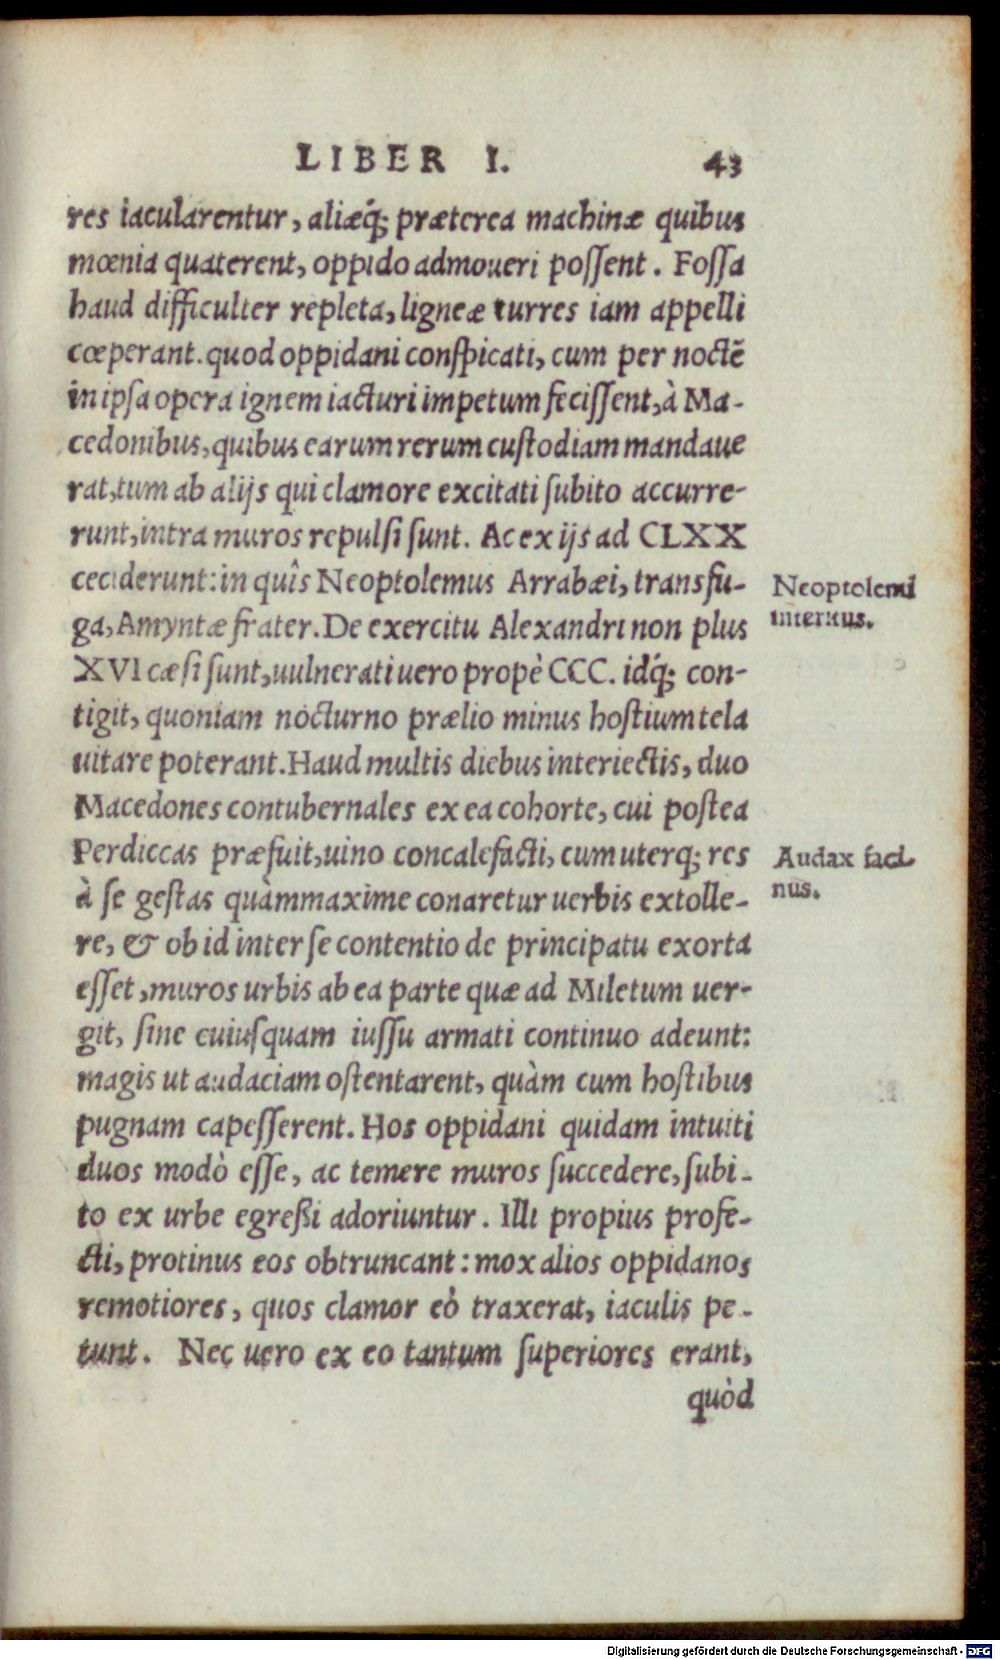 LIBER I. 43
res iacularentur, aliæq́; præterea machinæ quibus
mœnia quaterent, oppido admoueri possent. Fossa
haud difficulter repleta, ligneæ turres iam appelli
cœperant. quod oppidani conspicati, cum per noctē
in ipsa opera ignem iacturi impetum fecissent, à Ma-
cedonibus, quibus earum rerum custodiam mandaue
rat, tum ab alijs qui clamore excitati subito accurre-
runt, intra muros repulsi sunt. Ac ex ijs ad CLXX
ceciderunt: in quîs Neoptolemus Arrabæi, transfu-
ga, Amyntæ frater. De exercitu Alexandri non plus
XVI cæsi sunt, uulnerati uero propè CCC. idq́; con-
tigit, quoniam nocturno prælio minus hostium tela
uitare poterant. Haud multis diebus interiectis, duo
Macedones contubernales ex ea cohorte, cui postea
Perdiccas præfuit, uino concalefacti, cum uterq; res
à se gestas quàmmaxime conaretur uerbis extolle-
re, & ob id inter se contentio de principatu exorta
esset, muros urbis ab ea parte quæ ad Miletum uer-
git, sine cuiusquam iussu armati continuo adeunt:
magis ut audaciam ostentarent, quàm cum hostibus
pugnam capesserent. Hos oppidani quidam intuiti
duos modò esse, ac temere muros succedere, subi-
to ex urbe egreßi adoriuntur. Illi propius profe-
cti, protinus eos obtruncant: mox alios oppidanos
remotiores, quos clamor eò traxerat, iaculis pe-
tunt. Nec uero ex eo tantum superiores erant,
quòd
Neoptolemi
interitus.
Audax faci-
nus.
Digitalisierung gefördert durch die Deutsche Forschungsgemeinschaft - DFG